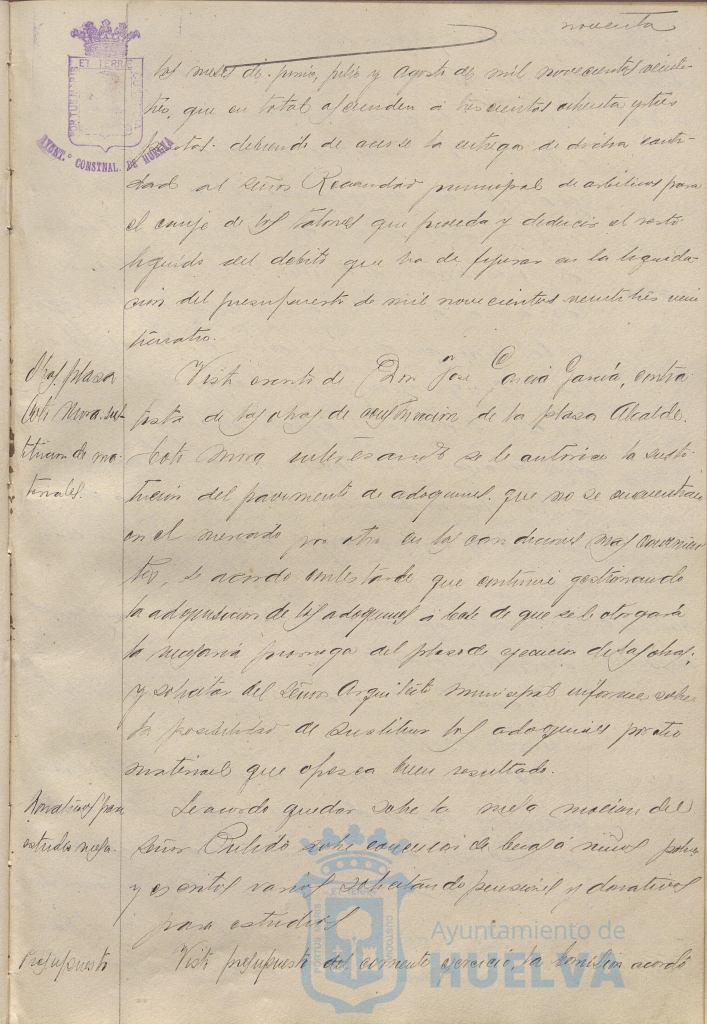 noventa
los meses de junio, julio y agosto de mil novecientos veinti-
trés, que en total ascienden a trescientas ochenta y tres
pesetas debiendo de acerse la entrega de dicha canti-
dad al Señor Recaudador municipal de arbitrios para
el canje de los talones que proceda y deducir el resto
liquido del débito que ha de figurar en la liquida-
ción del presupuesto de mil novecientos veintitrés vein
ticuatro.
Obras plaza
Coto Mora sus-
titucion de ma-
teriales.
Visto escrito de Don José García García, contra-
tista de las obras de construccion de la plaza Alcalde
Coto Mora interesando se le autorice la susti-
tucion del pavimento de adoquines que no se encuentran
en el mercado por otro en las condiciones mas convenien-
tes, se acordó contestarle que continúe gestionando
la adquisicion de los adoquines a base de que se le otorgará
la necesaria prorroga del plazo de ejecucion de las obras,
y solicitar del Señor Arquitecto municipal informe sobre
la posibilidad de sustituir los adoquines por otro
material que ofrezca buen resultado.
Donativos para
estudios mesa.
Se acordó quedar sobre la mesa mocion del
Señor Pulido sobre concesion de becas á niños pobres
y escritos varios solicitando pensiones y donativos
para estudios
Presupuesto
Visto presupuesto del corriente ejercicio, la Comision acordó
AYUNT.º CONSTNAL. DE HUELVA
Ayuntamiento de
HUELVA